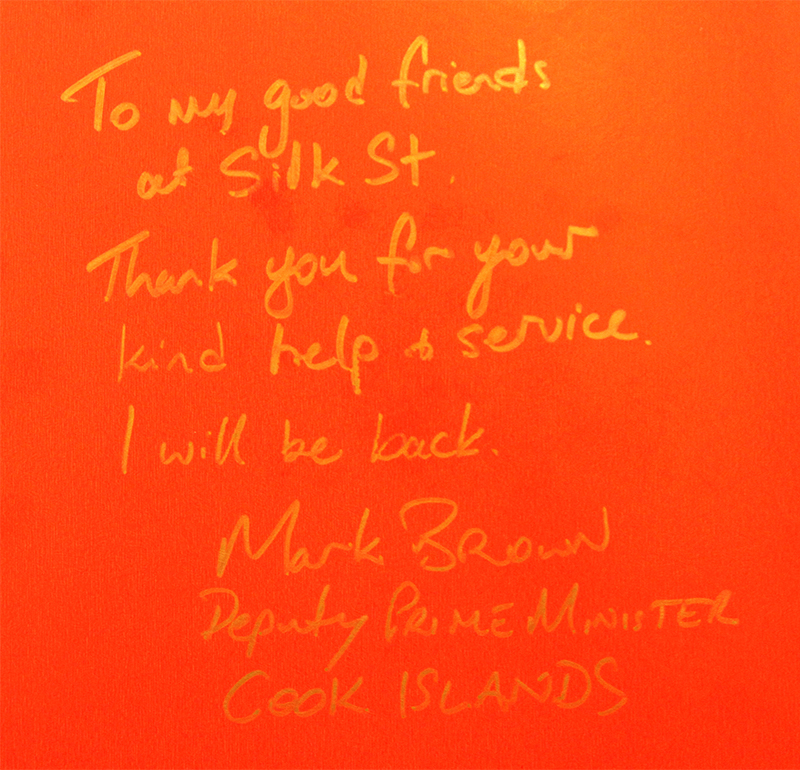 To my good friends
at Silk St.
Thank you for your
kind help & service.
I will be back.
Mark Brown
Deputy PRIME MINISTER
COOK ISLANDS